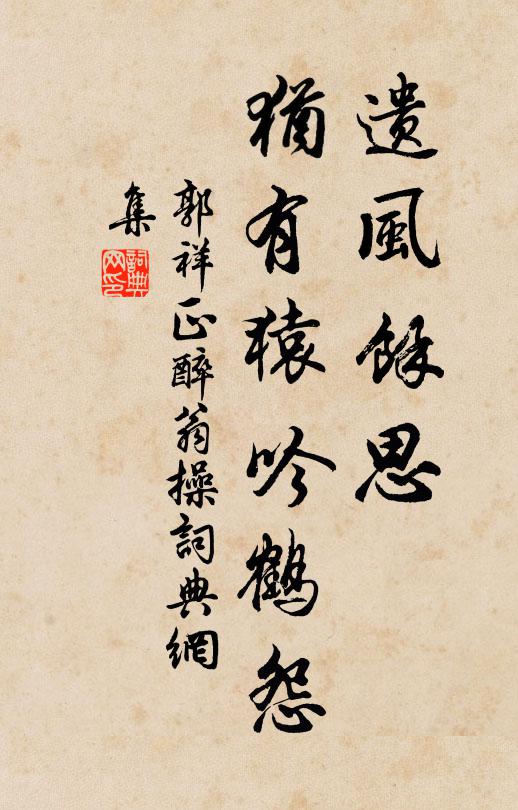 遺風餘思
猶有猿吟鶴怨
郭祥正醉翁操詞典網
集
詞典网印